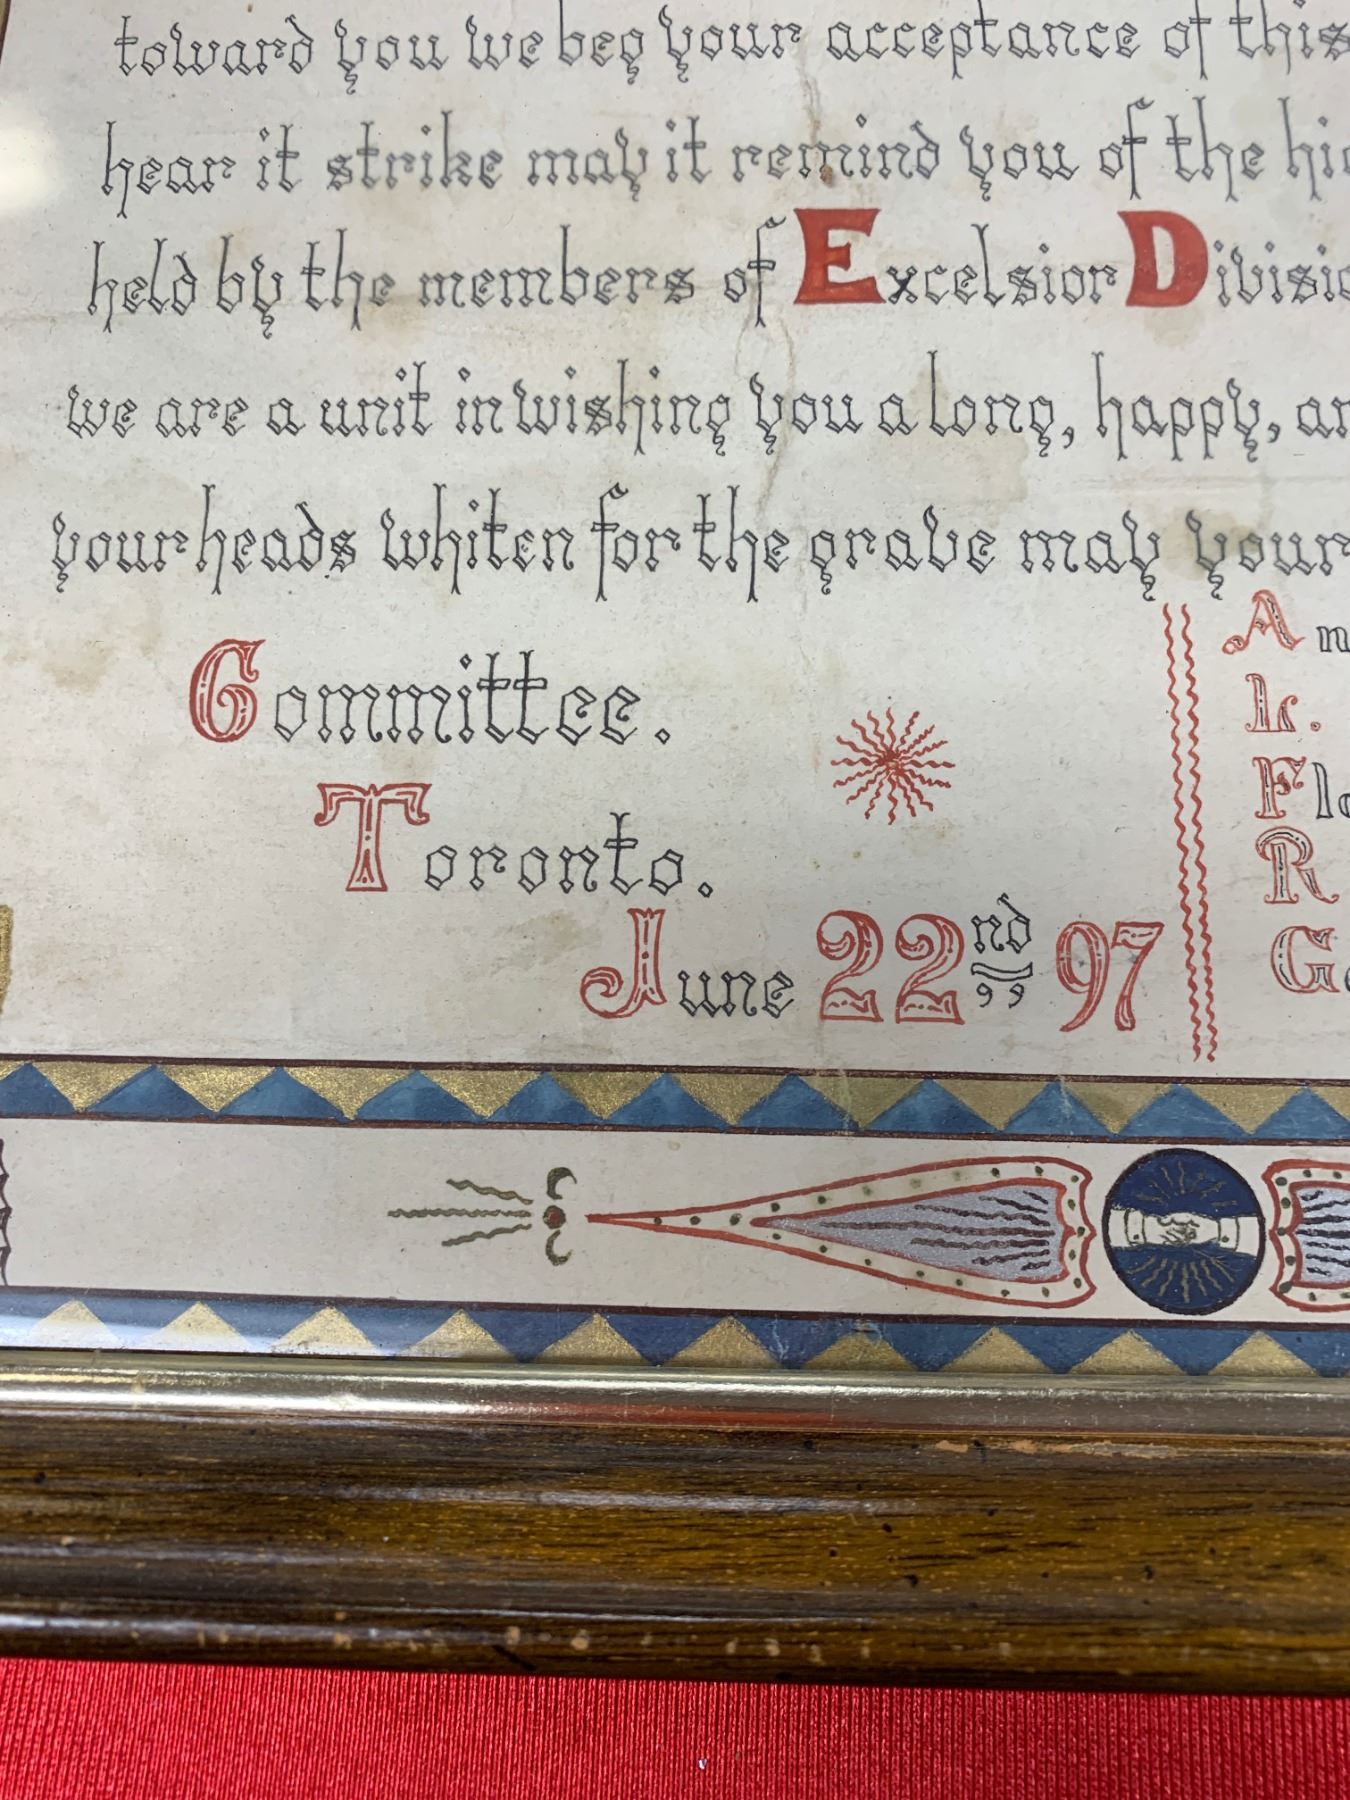 toward you we beg your acceptance of this
hear it strike may it remind you of the
held by the members of Excelsior
we are a unit in wishing you a long, happy,
your heads whiten for the grave may your
Committee.
Toronto.
June 22nd 97
A
L.
F
R
G